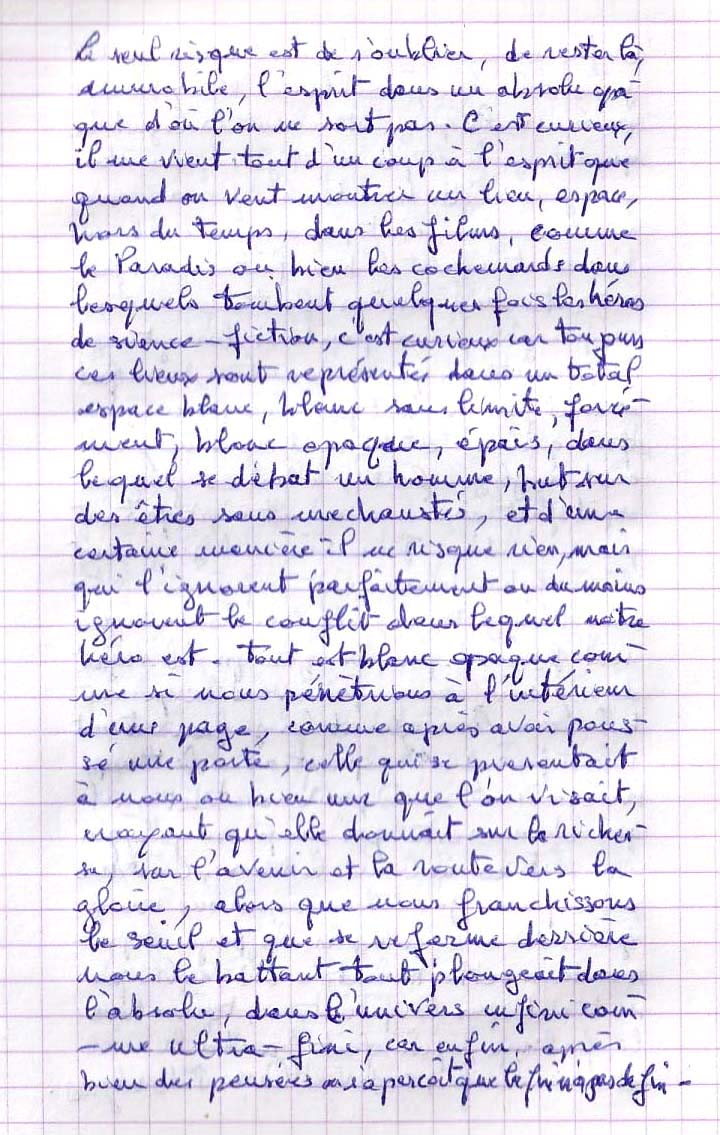 Le seul risque est de s'oublier, de rester là,
immobile, l'esprit dans un absolu opa-
que d'où l'on ne sort pas. C'est curieux,
il me vient tout d'un coup à l'esprit que
quand on veut montrer un lieu, espace,
hors du temps, dans les films, comme
le Paradis ou bien les cochemards dans
lesquels tombent quelques fois les héros
de science-fiction, c'est curieux car toujours
ces lieux sont représentés dans un total
espace blanc, blanc sans limite, forcé-
ment, blanc opaque, épais, dans
lequel se débat un homme, but sur
des êtres sans mechanstés, et d'une
certaine manière il ne risque rien, mais
qui l'ignorent parfaitement ou du moins
ignorent le conflit dans lequel notre
héro est. Tout est blanc opaque com-
me si nous pénétrions à l'intérieur
d'une page, comme après avoir pous-
sé une porte, celle qui se presentait
à nous ou bien une que l'on visait,
croyant qu'elle donnait sur la riches-
se, sur l'avenir et la route vers la
gloire, alors que nous franchissons
le seuil et que se referme derrière
nous le battant tout plongeait dans
l'absolu, dans l'univers infini com-
-me ultra-fini, car enfin, après
bien des pensées on s'aperçoit que la fin n'a pas de fin -